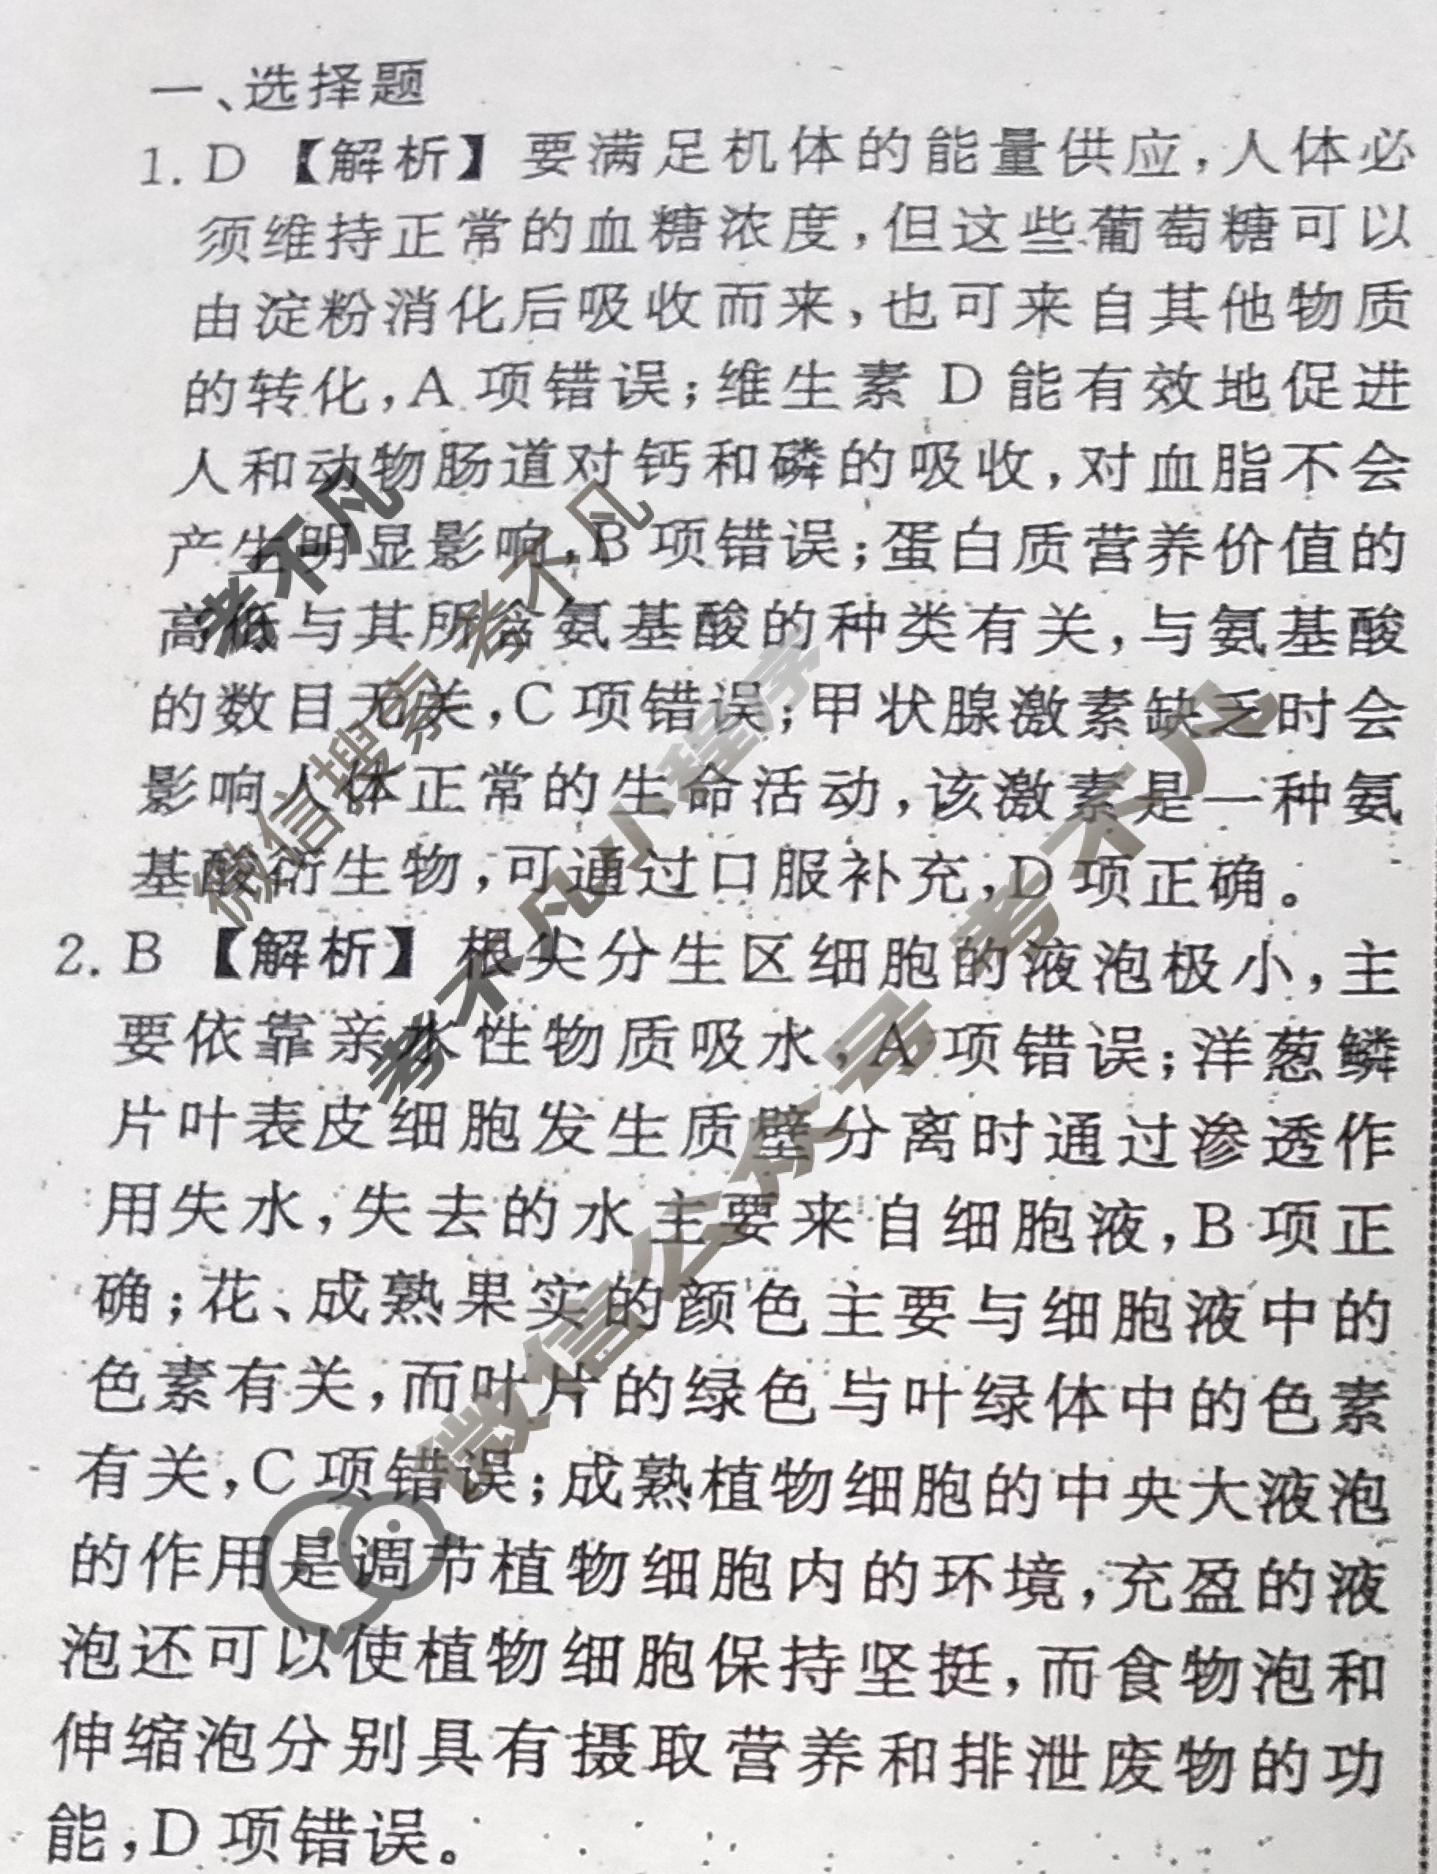 一、选择题
1. D 【解析】要满足机体的能量供应,人体必
须维持正常的血糖浓度,但这些葡萄糖可以
由淀粉消化后吸收而来,也可来自其他物质
的转化,A 项错误;维生素 D 能有效地促进
人和动物肠道对钙和磷的吸收,对血脂不会
产生明显影响,B 项错误;蛋白质营养价值的
高低与其所含氨基酸的种类有关,与氨基酸
的数目无关,C 项错误;甲状腺激素缺乏时会
影响人体正常的生命活动,该激素是一种氨
基酸衍生物,可通过口服补充,D 项正确。
2. B 【解析】根尖分生区细胞的液泡极小,主
要依靠亲水性物质吸水,A 项错误;洋葱鳞
片叶表皮细胞发生质壁分离时通过渗透作
用失水,失去的水主要来自细胞液,B 项正
确;花、成熟果实的颜色主要与细胞液中的
色素有关,而叶片的绿色与叶绿体中的色素
有关,C 项错误;成熟植物细胞的中央大液泡
的作用是调节植物细胞内的环境,充盈的液
泡还可以使植物细胞保持坚挺,而食物泡和
伸缩泡分别具有摄取营养和排泄废物的功
能,D 项错误。
考不凡
微信搜索 考不凡
考不凡小程序
微信公众号 考不凡